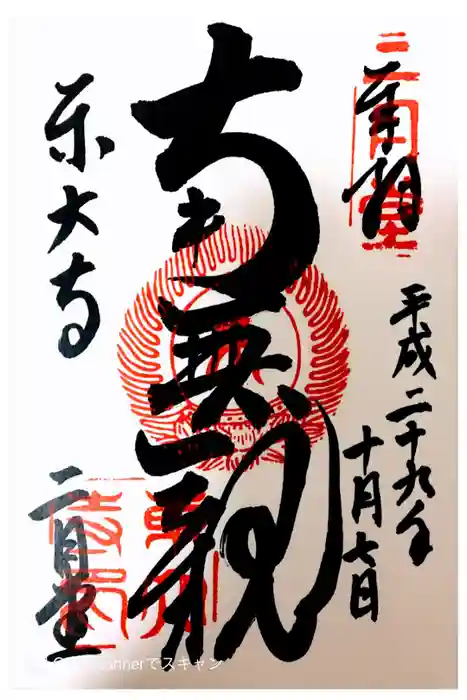 奉拝
二月堂
平成二十九年
十月七日
南無観
東大寺
二月堂
Scannerでスキャン